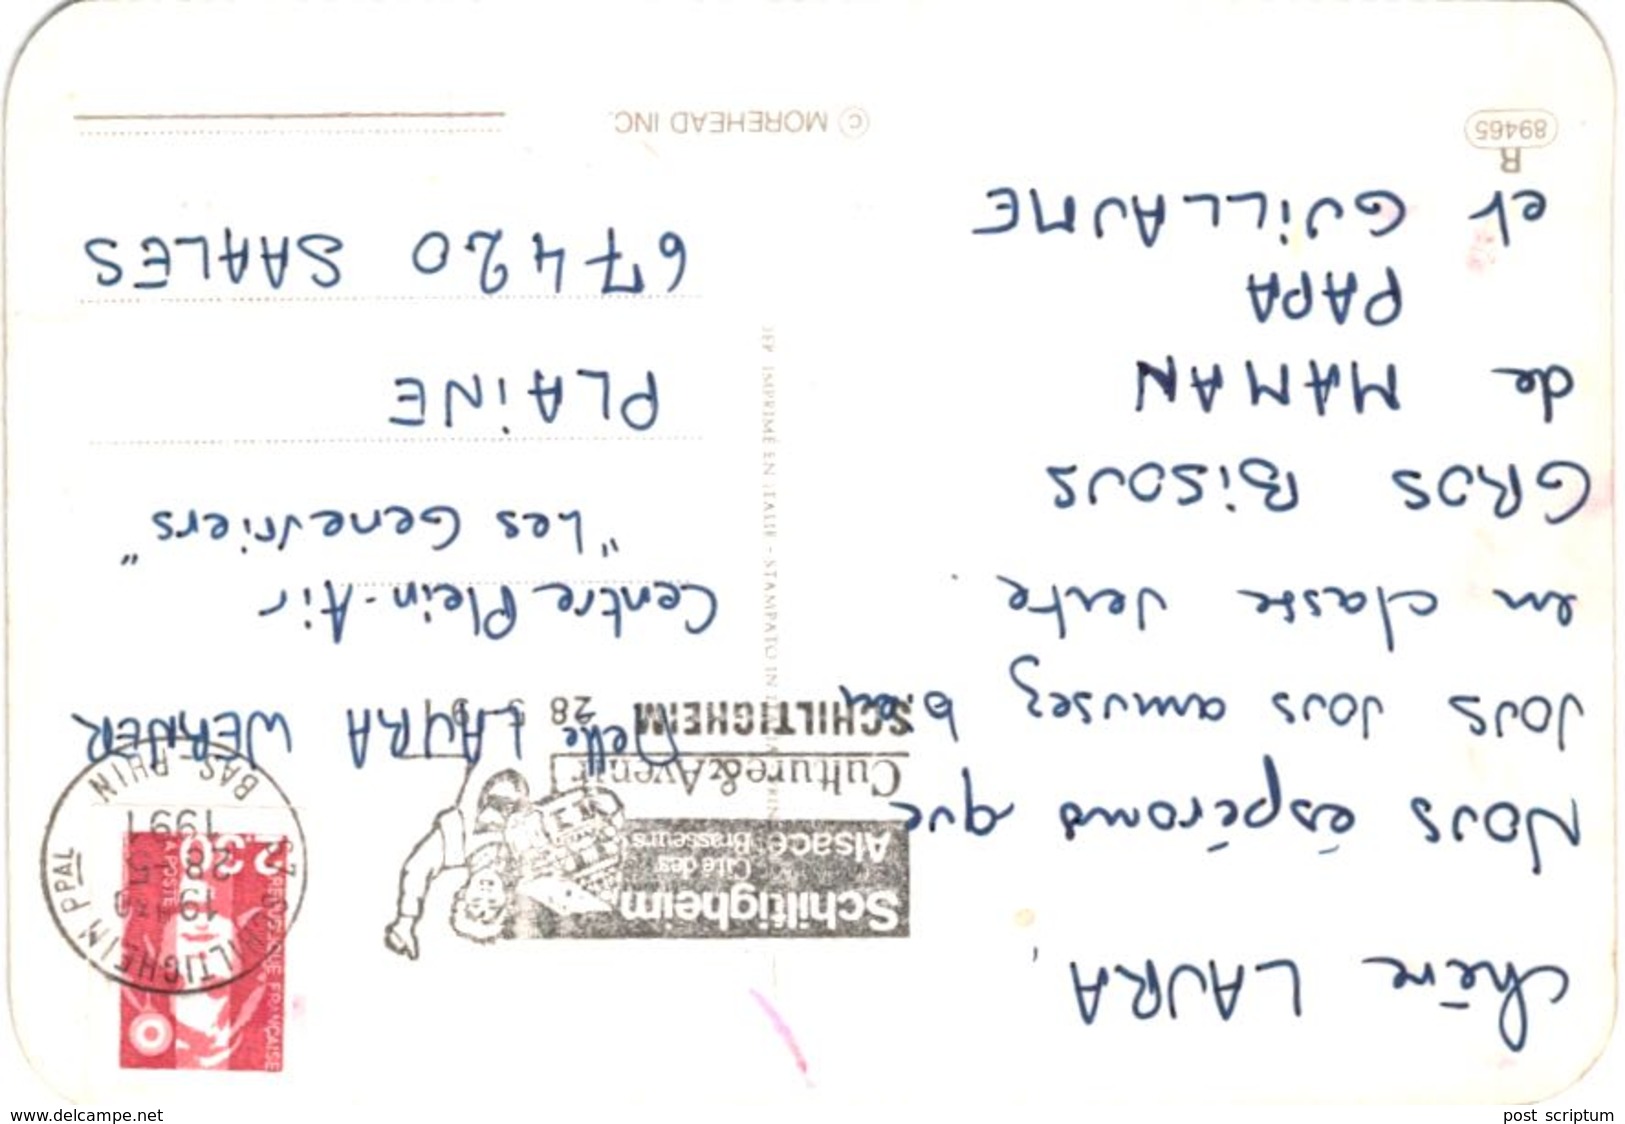 Chère LAURA,
Nous éspérons que
vous vous amusez bien
en classe verte.
GROS BISOUS
de MAMAN
PAPA
et GUILLAUME
89465
R
© MOREHEAD INC.
Schiltigheim
Cité des
Brasseurs
Alsace
Culture & Avenir
SCHILTIGHEIM
28
67 SCHILTIGHEIM PPAL
19H
28-5
1991
BAS-RHIN
REPUBLIQUE FRANÇAISE
LA POSTE
2,30
Melle LAURA WERNER
Centre Plein-Air
"Les Genevriers"
PLAINE
67420 SAALES
IMPRIME EN ITALIE - STAMPATO IN
www.delcampe.net
post scriptum